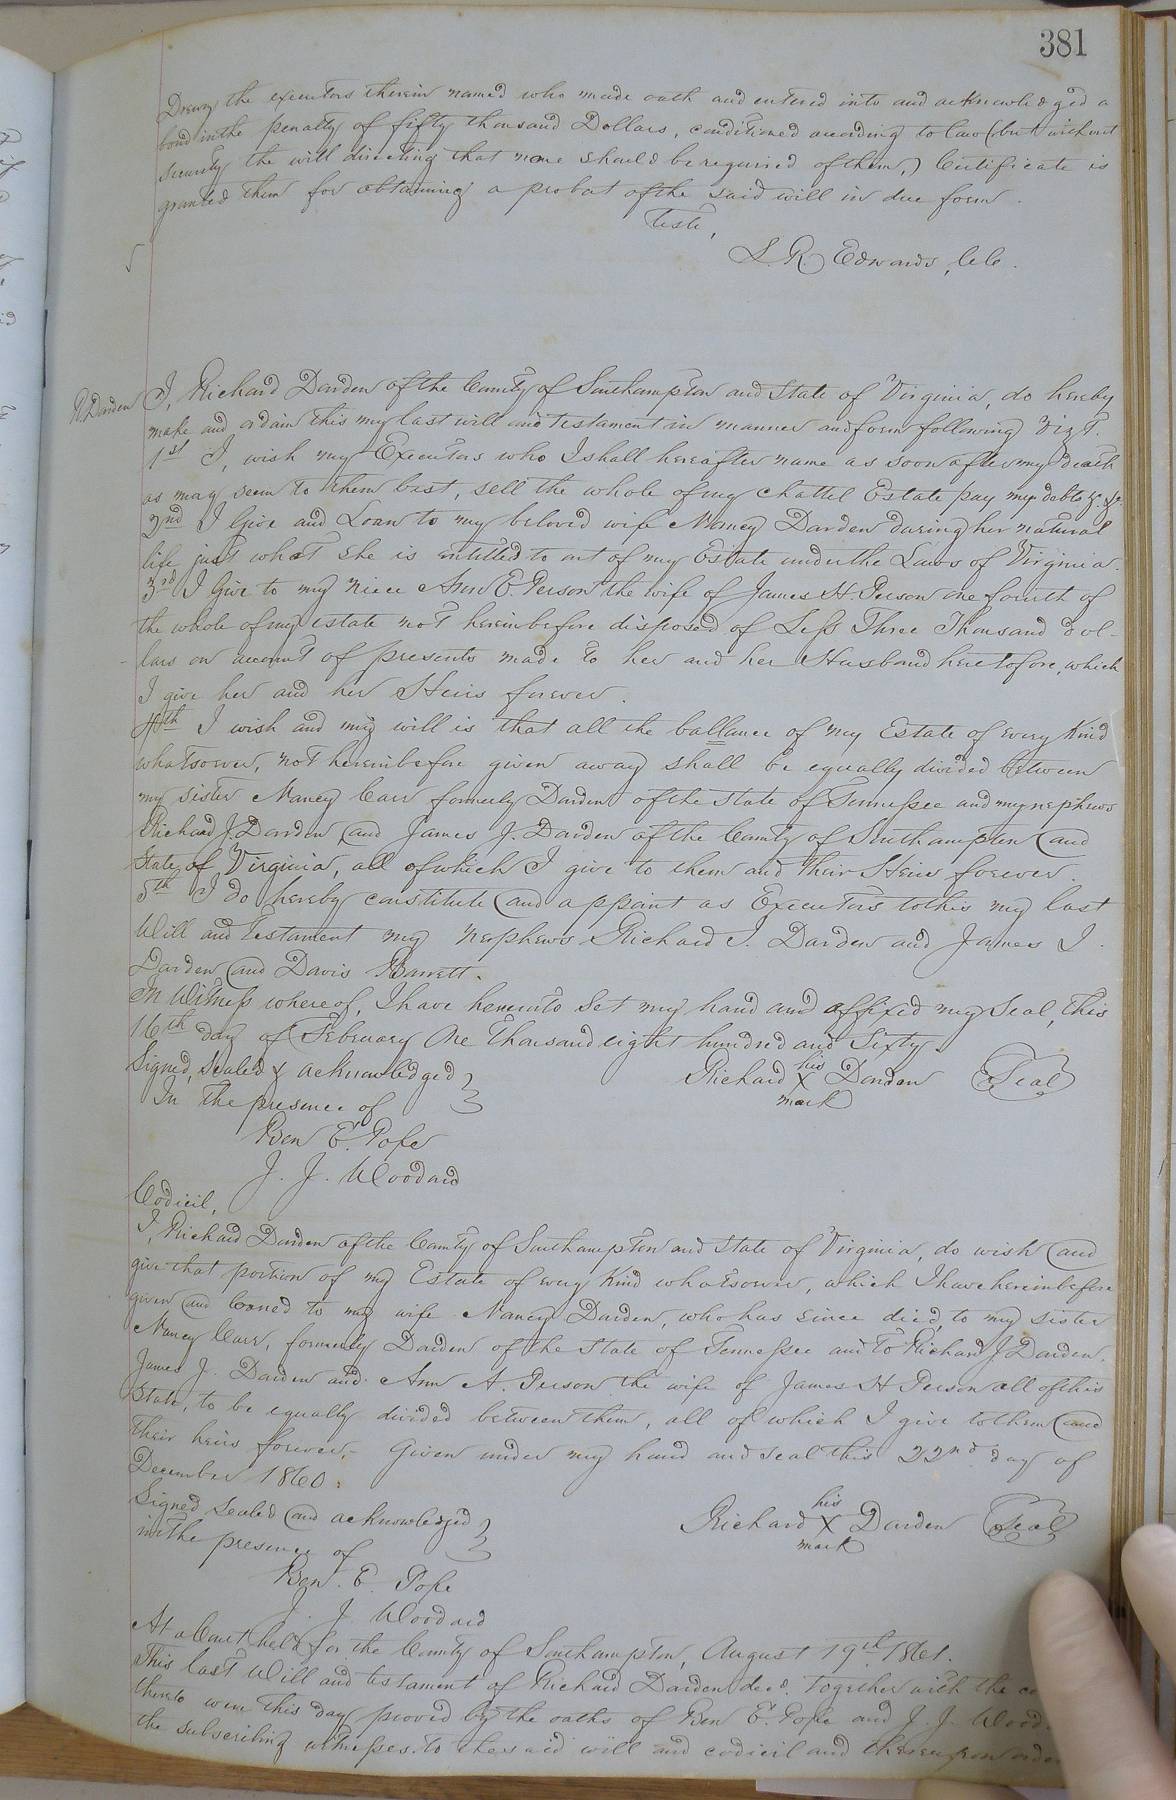 381
Drewry the executors therein named who made oath and entered into and acknowledged a
bond in the penalty of fifty thousand Dollars, conditioned according to law (but without
security the will directing that none should be required of them,) Certificate is
granted them for obtaining a probat of the said will in due form.
Teste,
L. R. Edwards, C.C.
R. Darden
I, Richard Darden of the County of Southampton and State of Virginia, do hereby
make and ordain this my last will and testament in manner and form following Vizt.
1st I, wish my Executors who I shall hereafter name as soon after my death
as may seem to them best, sell the whole of my chattel Estate pay my debts &c. &c.
2nd I Give and Loan to my beloved wife Nancy Darden during her natural
life just what she is entitled to out of my Estate under the Laws of Virginia.
3rd I Give to my niece Ann E. Person the wife of James H. Person one fourth of
the whole of my estate not hereinbefore disposed of Less Three Thousand dol-
lars on account of presents made to her and her Husband heretofore, which
I give her and her Heirs forever.
4th I wish and my will is that all the ballance of my Estate of every Kind
whatsoever, not hereinbefore given away shall be equally divided between
my sister Nancy Carr formerly Darden of the State of Tennessee and my nephews
Richard J. Darden and James J. Darden of the County of Southampton and
State of Virginia, all of which I give to them and their Heirs forever.
5th I do hereby constitute and appoint as Executors to this my last
Will and Testament my nephews Richard J. Darden and James J.
Darden and Davis Barrett.
In Witness whereof, I have hereunto Set my hand and affixed my Seal, this
16th day of February One Thousand eight hundred and Sixty.
Signed, Sealed & acknowledged
In the presence of
Richard his X mark Darden Seal
Ben E. Pope
J. J. Woodard
Codicil,
I, Richard Darden of the County of Southampton and State of Virginia, do wish and
give that portion of my Estate of every Kind whatsoever, which I have hereinbefore
given and Loaned to my wife Nancy Darden, who has since died, to my sister
Nancy Carr, formerly Darden of the State of Tennessee and To Richard J Darden,
James J. Darden and Ann A. Person the wife of James H Person all of this
State, to be equally divided between them, all of which I give to them and
their heirs forever,- Given under my hand and seal this 22nd day of
December 1860.
Signed Sealed and acknowledged
in the presence of
Richard his X mark Darden Seal
Ben. E. Pope
J. J. Woodard
At a Court held for the County of Southampton, August 19th 1861.
This last Will and testament of Richard Darden decd. together with the
thereto were this day proved by the oaths of Ben E. Pope and J. J. Wood
the subscribing witnesses to the said will and codicil and thereupon